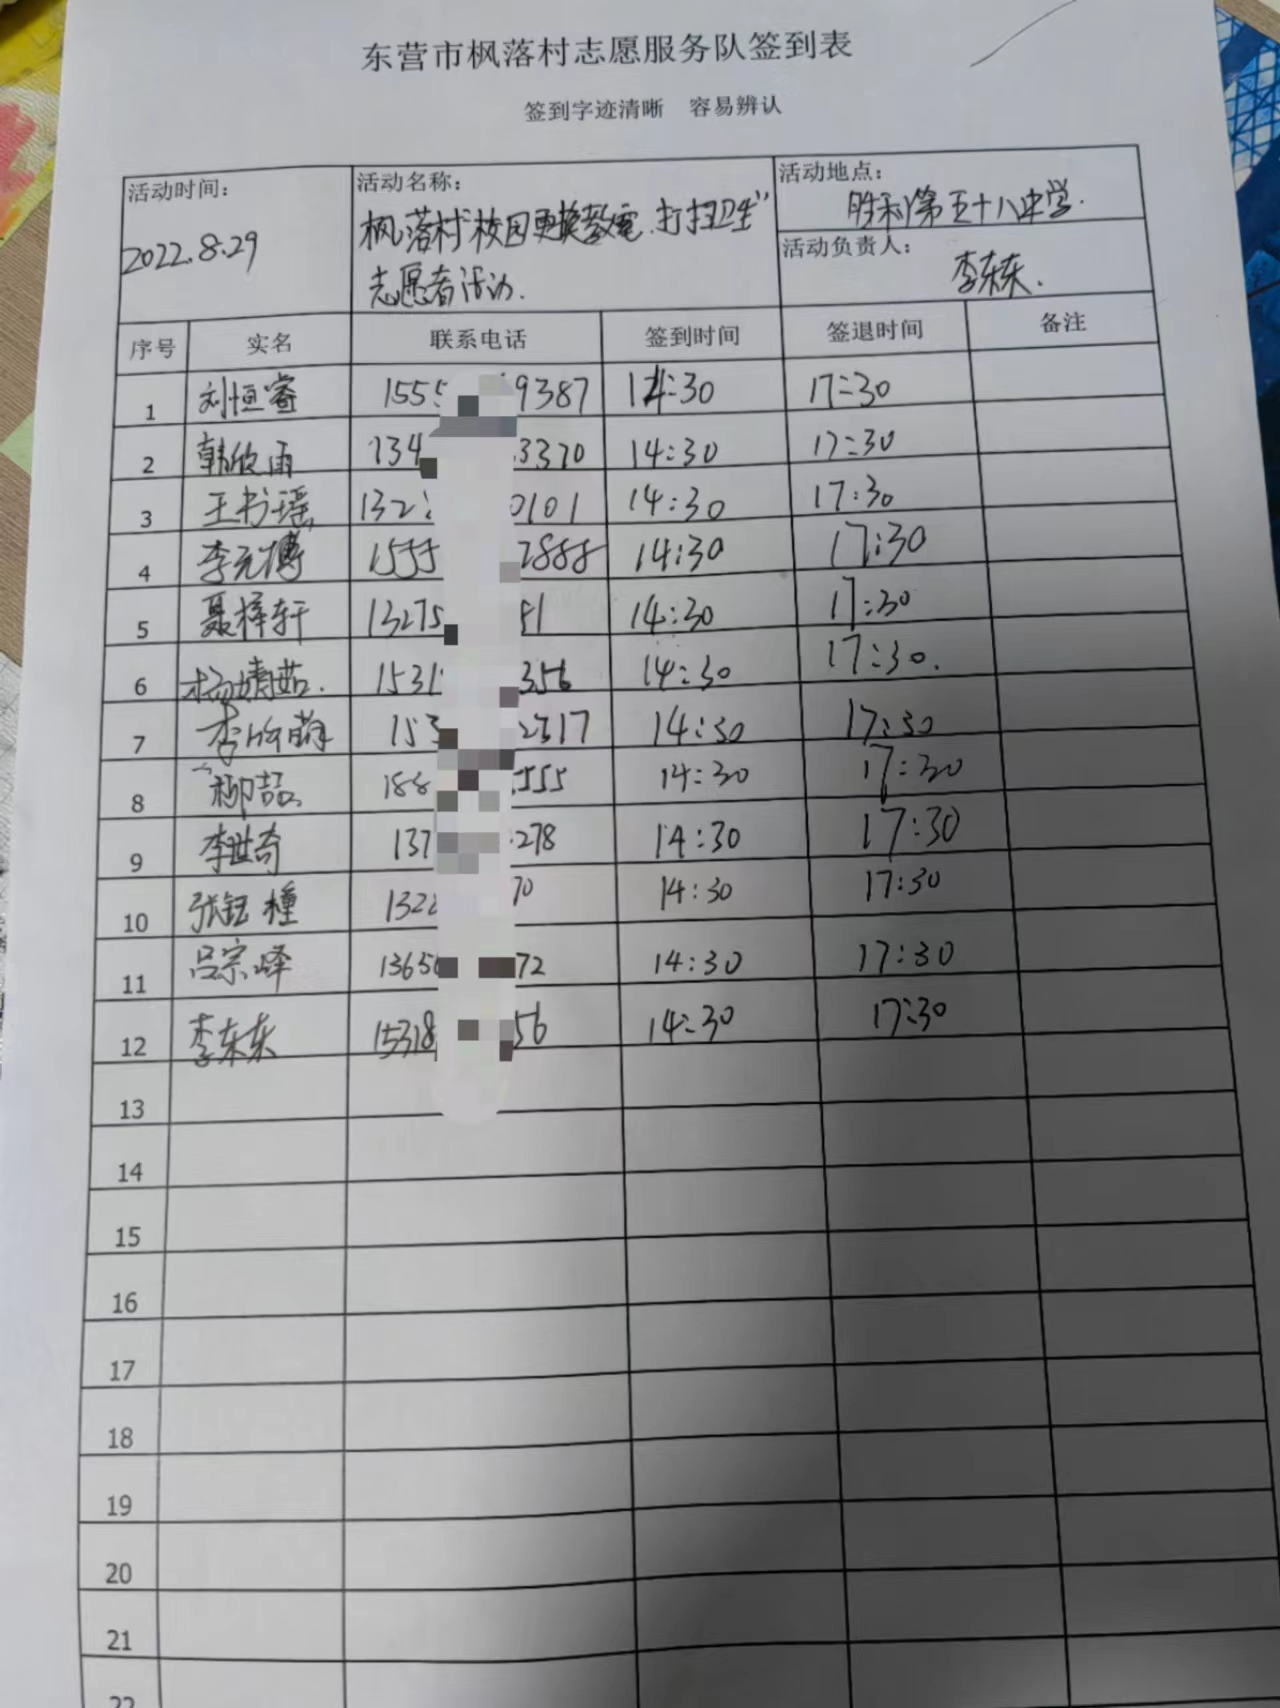 东营市枫落村志愿服务队签到表
签到字迹清晰 容易辨认
活动时间：
2022.8.29
活动名称：
枫落村"校园更换教室.打扫卫生"
志愿者活动.
活动地点：
胜利第五十八中学.
活动负责人：
李东东.
序号 实名 联系电话 签到时间 签退时间 备注
1 刘恒睿 155 9387 14:30 17:30
2 韩欣雨 134 3370 14:30 17:30
3 王书瑶 132 0101 14:30 17:30
4 李元博 1555 2888 14:30 17:30
5 聂梓轩 13275 51 14:30 17:30
6 杨婧茹. 1531 356 14:30 17:30.
7 李昀蔚 153 2317 14:30 17:30
8 柳喆 188 555 14:30 17:30
9 李世奇 137 278 14:30 17:30
10 张钰橦 132 70 14:30 17:30
11 吕宗峰 1365 72 14:30 17:30
12 李东东 15318 56 14:30 17:30
13
14
15
16
17
18
19
20
21
22